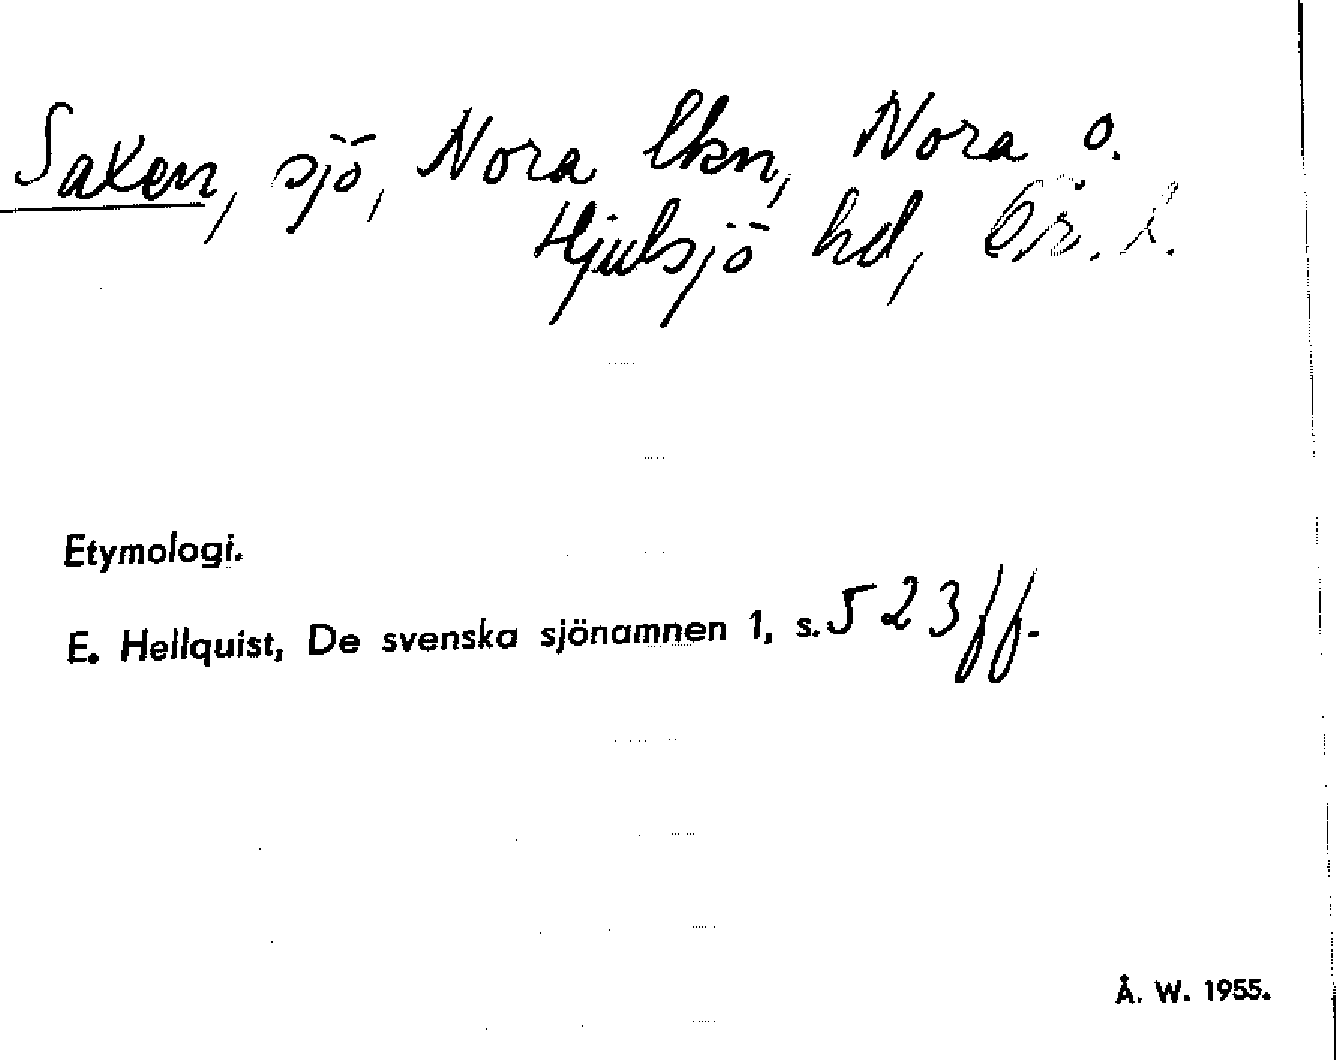 Saxen, sjö, Nora lkn, Nora o.
Hjulsjö hd, Ör. l.
Etymologi.
E. Hellquist, De svenska sjönamnen 1, s. 523 ff.
Å. W. 1955.